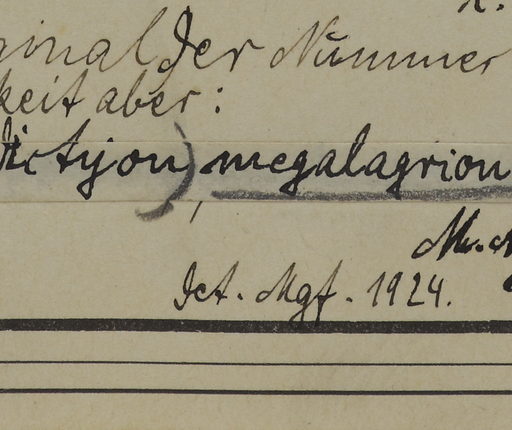 ginal der Nummer
keit aber:
Dictyon), megalagrion
M.
Det. Mgf. 1924.